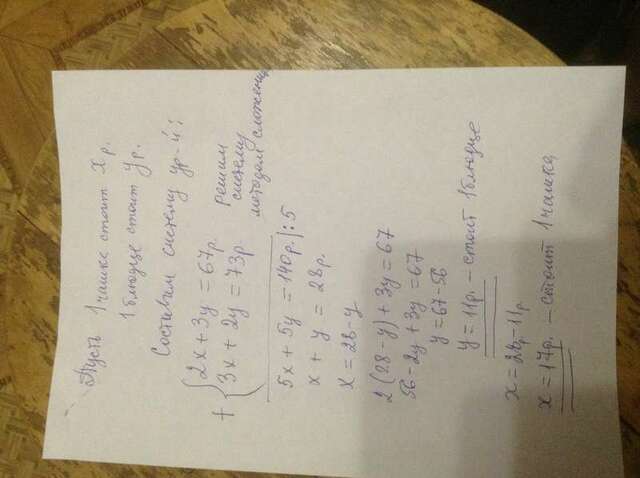 Пусть 1 чашка стоит x р.
1 блюдце стоит y р.
Составим систему ур-й:
+ { 2x + 3y = 67р.
3x + 2y = 73р.
решим
систему
методом сложения
5x + 5y = 140р. | : 5
x + y = 28р.
x = 28 - y
2(28 - y) + 3y = 67
56 - 2y + 3y = 67
y = 67 - 56
y = 11р. - стоит 1 блюдце
x = 28р - 11р
x = 17р. - стоит 1 чашка